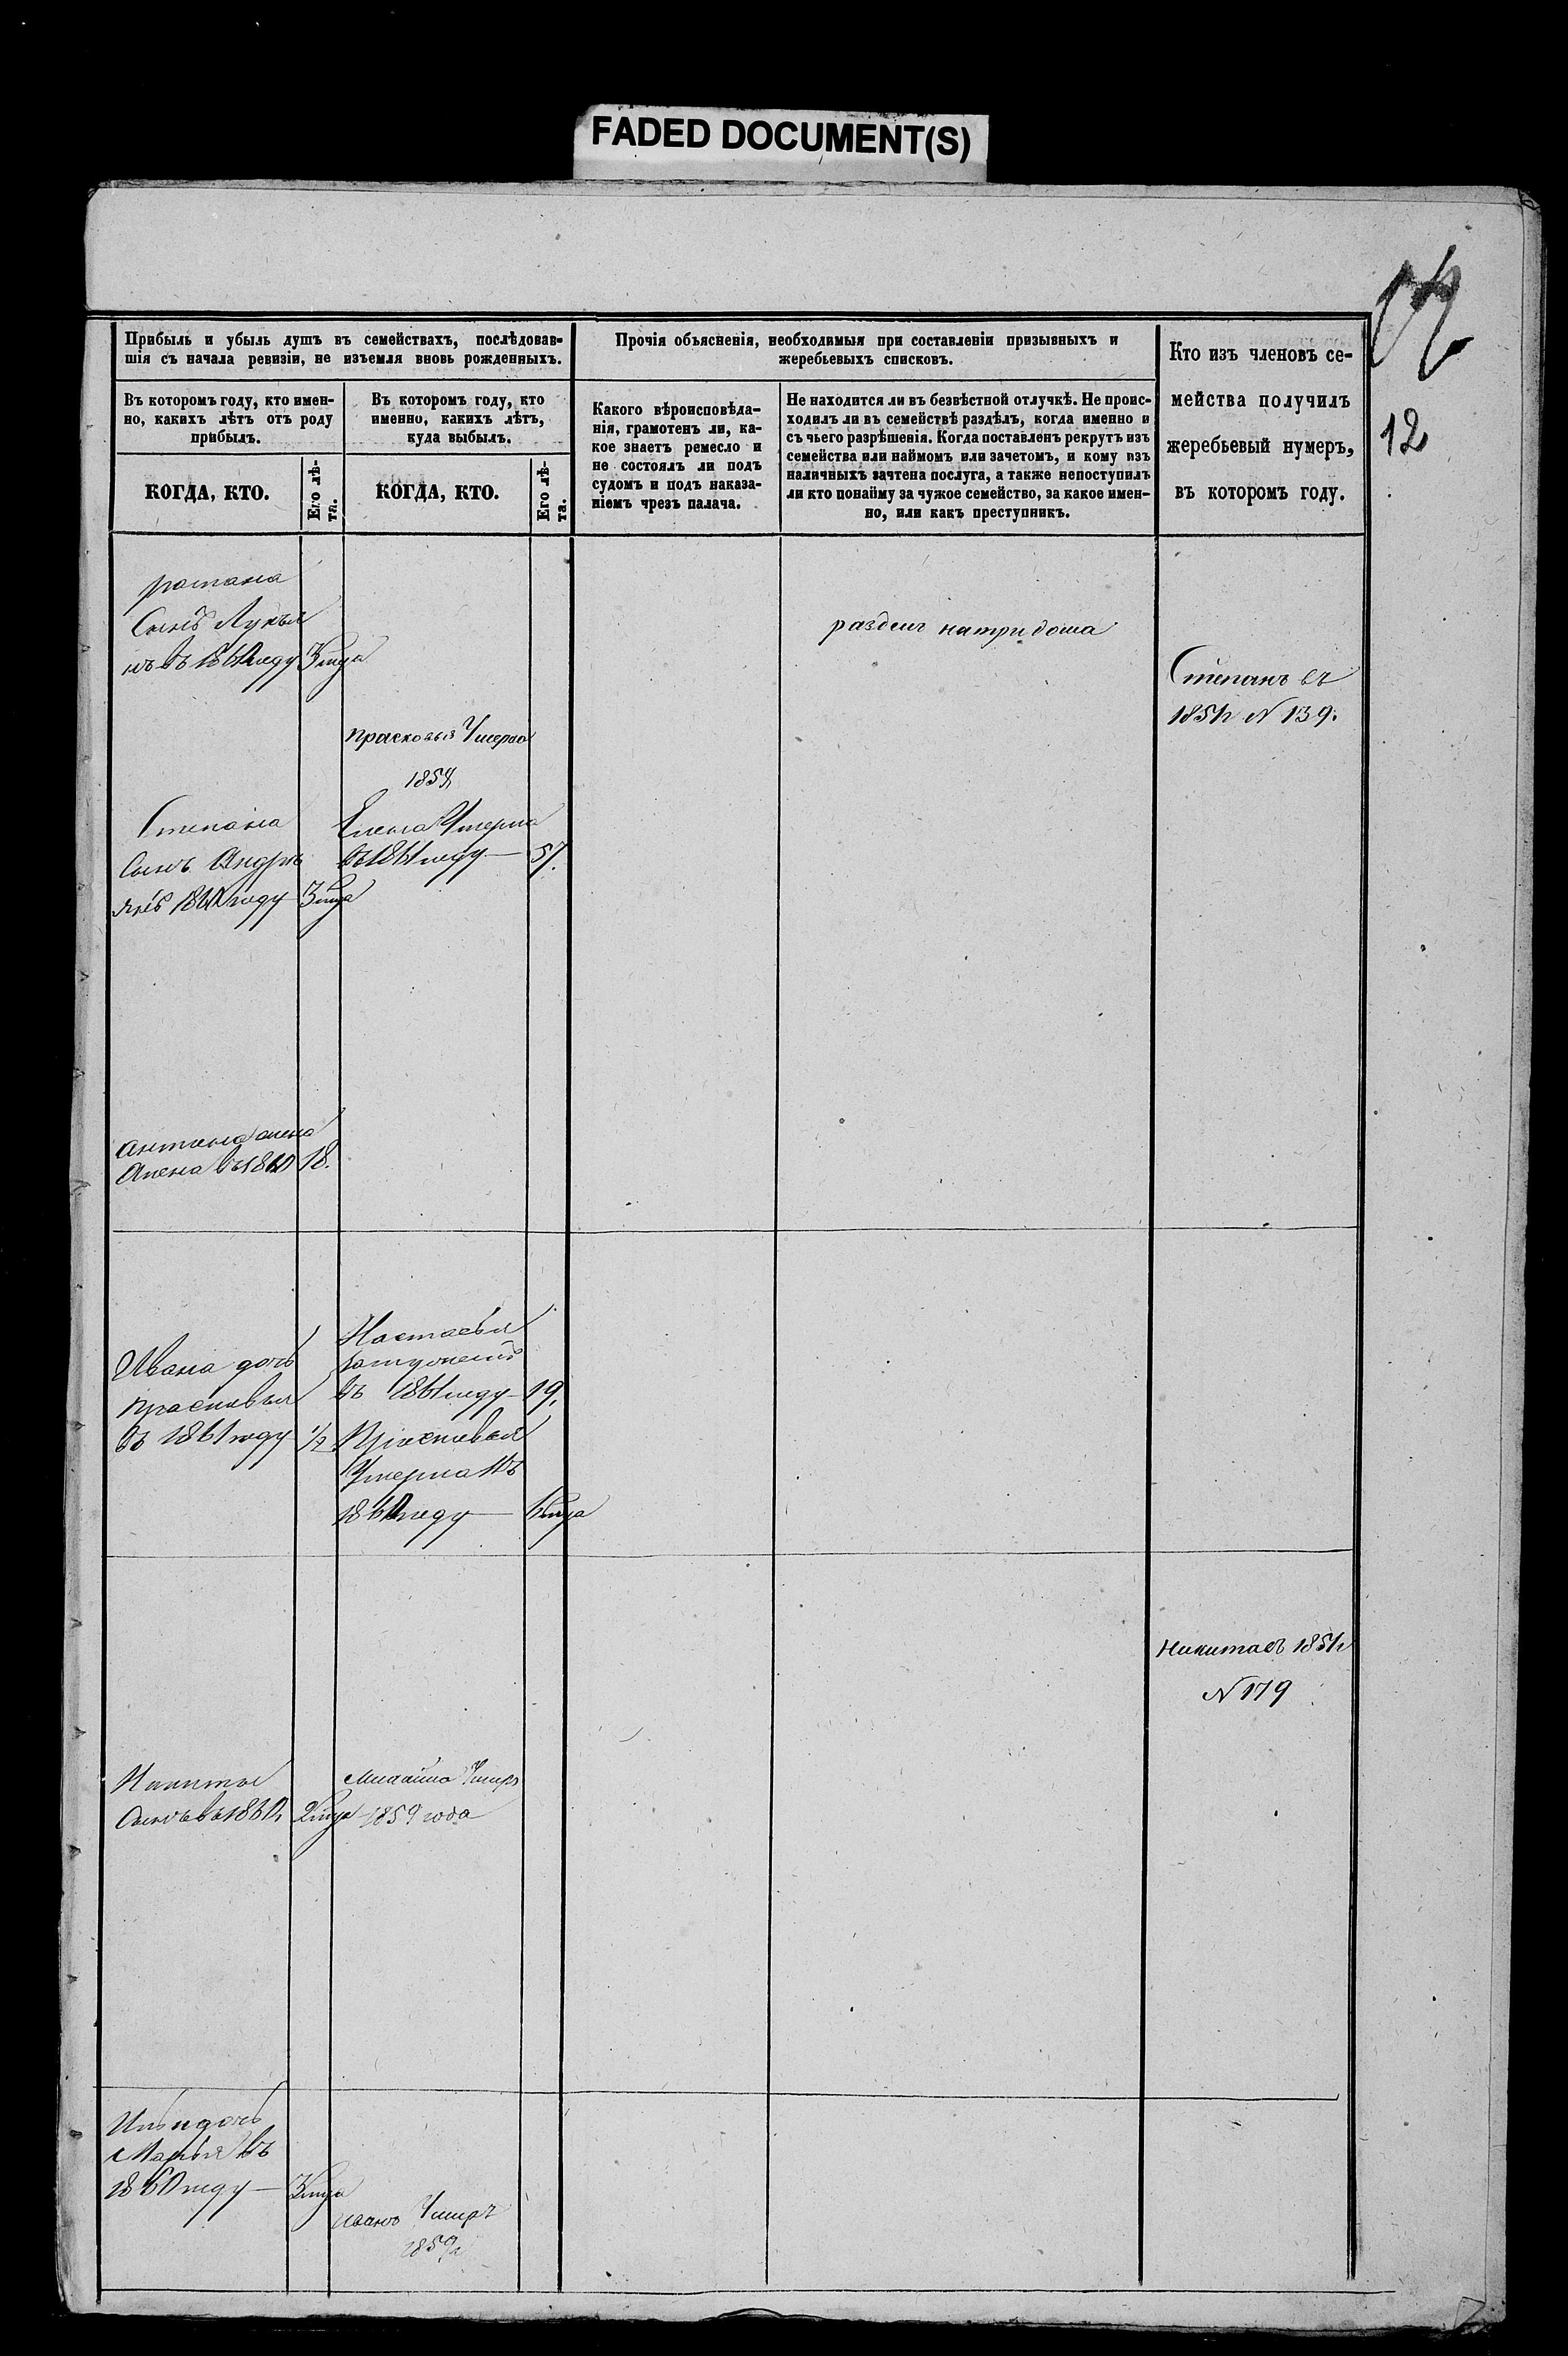 FADED DOCUMENT(S)
12
Прибыль и убыль душъ въ семействахъ, послѣдовав-
шія съ начала ревизіи, не изъемля вновь рожденныхъ.
Въ которомъ году, кто имен-
но, какихъ лѣтъ отъ роду
прибылъ.
КОГДА, КТО.
Его лѣ-
та.
Въ которомъ году, кто
именно, какихъ лѣтъ,
куда выбылъ.
КОГДА, КТО.
Его лѣ-
та.
Прочія объясненія, необходимыя при составленіи призывныхъ и
жеребьевыхъ списковъ.
Какого вѣроисповѣда-
нія, грамотенъ ли, ка-
кое знаетъ ремесло и
не состоялъ ли подъ
судомъ и подъ наказа-
ніемъ чрезъ палача.
Не находится ли въ безвѣстной отлучкѣ. Не проис-
ходилъ ли въ семействѣ раздѣлъ, когда именно и
съ чьего разрѣшенія. Когда поставленъ рекрутъ изъ
семейства или наймомъ или зачетомъ, и кому изъ
наличныхъ зачтена послуга, а также непоступилъ
ли кто понайму за чужое семейство, за какое имен-
но, или какъ преступникъ.
Кто изъ членовъ се-
мейства получилъ
жеребьевый нумеръ,
въ которомъ году.
Сынъ Лукья
нъ въ 1860 году 3 года
раздел на три дома
Степанъ въ
N 139.
прасковья Умерла
1859
Степана
сынъ Андре
янъ 1860 году 3 года
Елена Умерла
въ 1861 году — 57.
Антона жена
Алена въ 1860 18.
Ивана дочь
прасковья
въ 1861 году 1/2
Настасья
въ 1861 году — 19.
Прасковья
Умерла въ
1860 году —
Никита въ
N 179
Никиты
Сынъ въ 1860 2 года
Михайло Умеръ
1859 года
дочь
Марья въ
1860 году — 3 года
иванъ Умеръ
1859